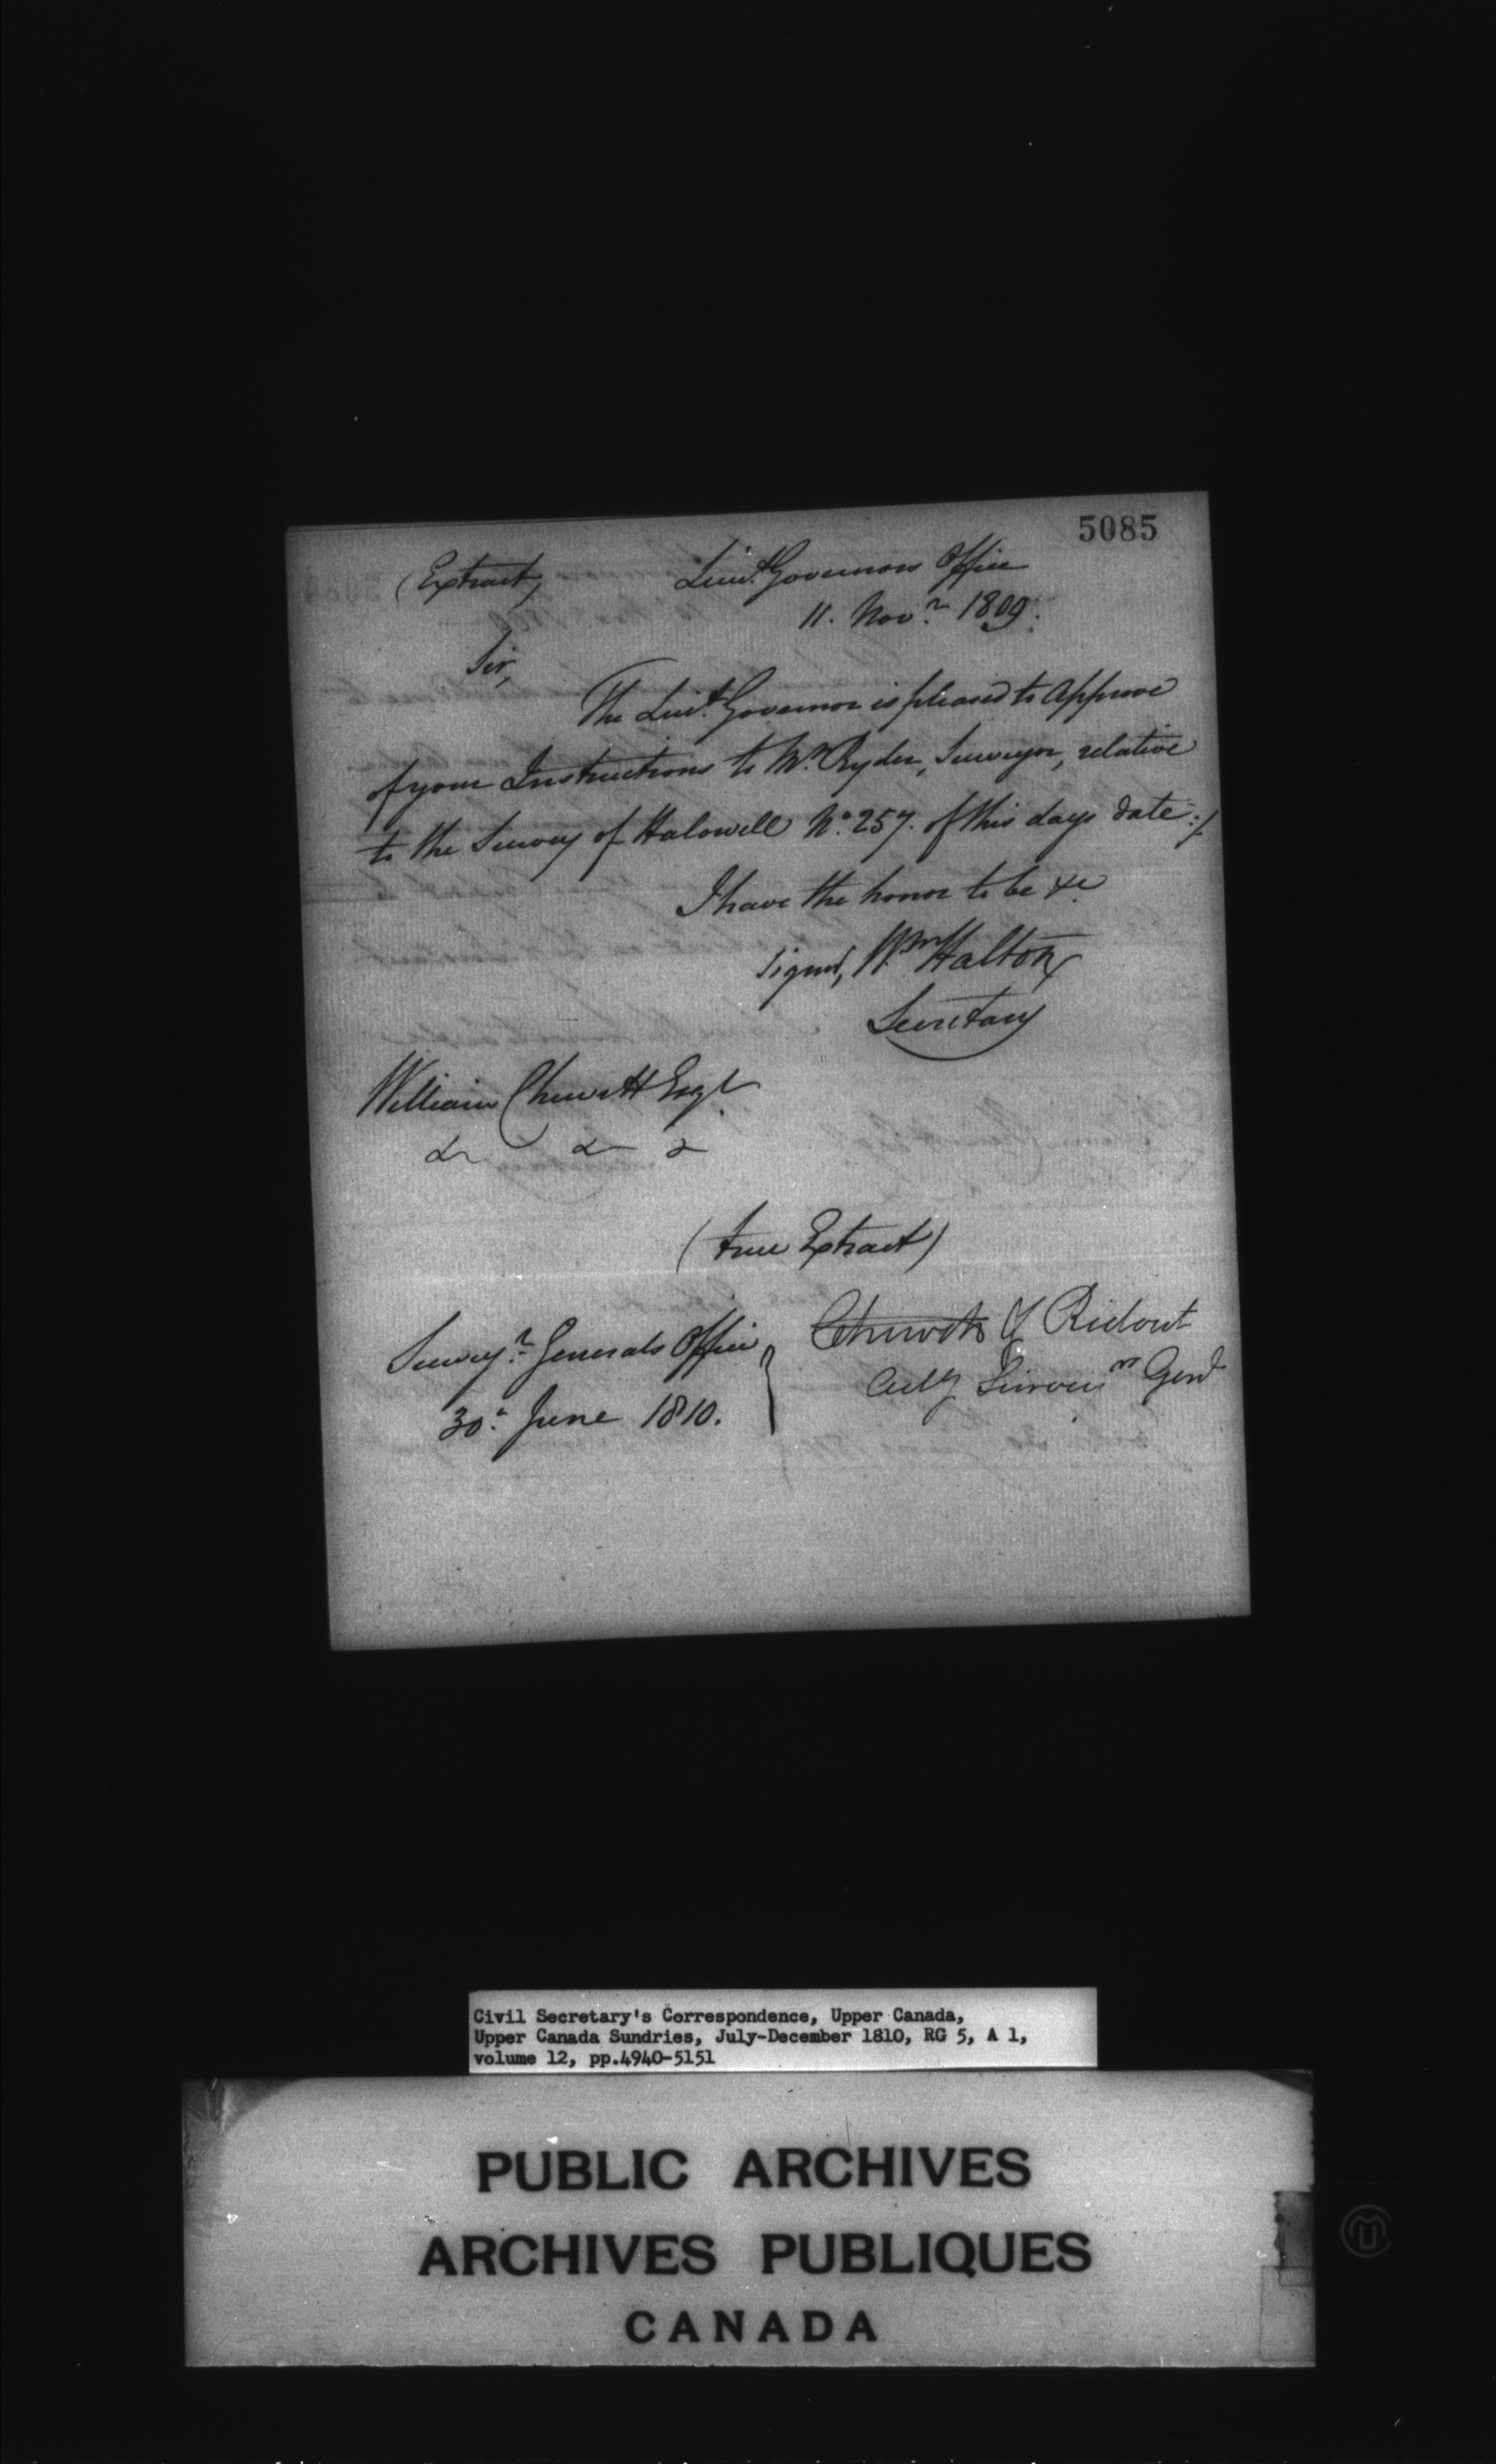 5085
(Extract) Lieut. Governors Office
11. Novr. 1809.
Sir,
The Lieut. Governor is pleased to Approve
of your Instructions to Mr. Ryder, Surveyor, relative
to the Survey of Halowell No. 257. of this days date :/.
I have the honor to be &c.
Signed, Wm. Halton
Secretary
William Chewett Esqr.
&c &c &c
(true Extract)
Surveyr. Generals Office
30th June 1810.
Chewett & Ridout
Actg Surveyrs Genl
Civil Secretary's Correspondence, Upper Canada,
Upper Canada Sundries, July-December 1810, RG 5, A 1,
volume 12, pp.4940-5151
PUBLIC ARCHIVES
ARCHIVES PUBLIQUES
CANADA